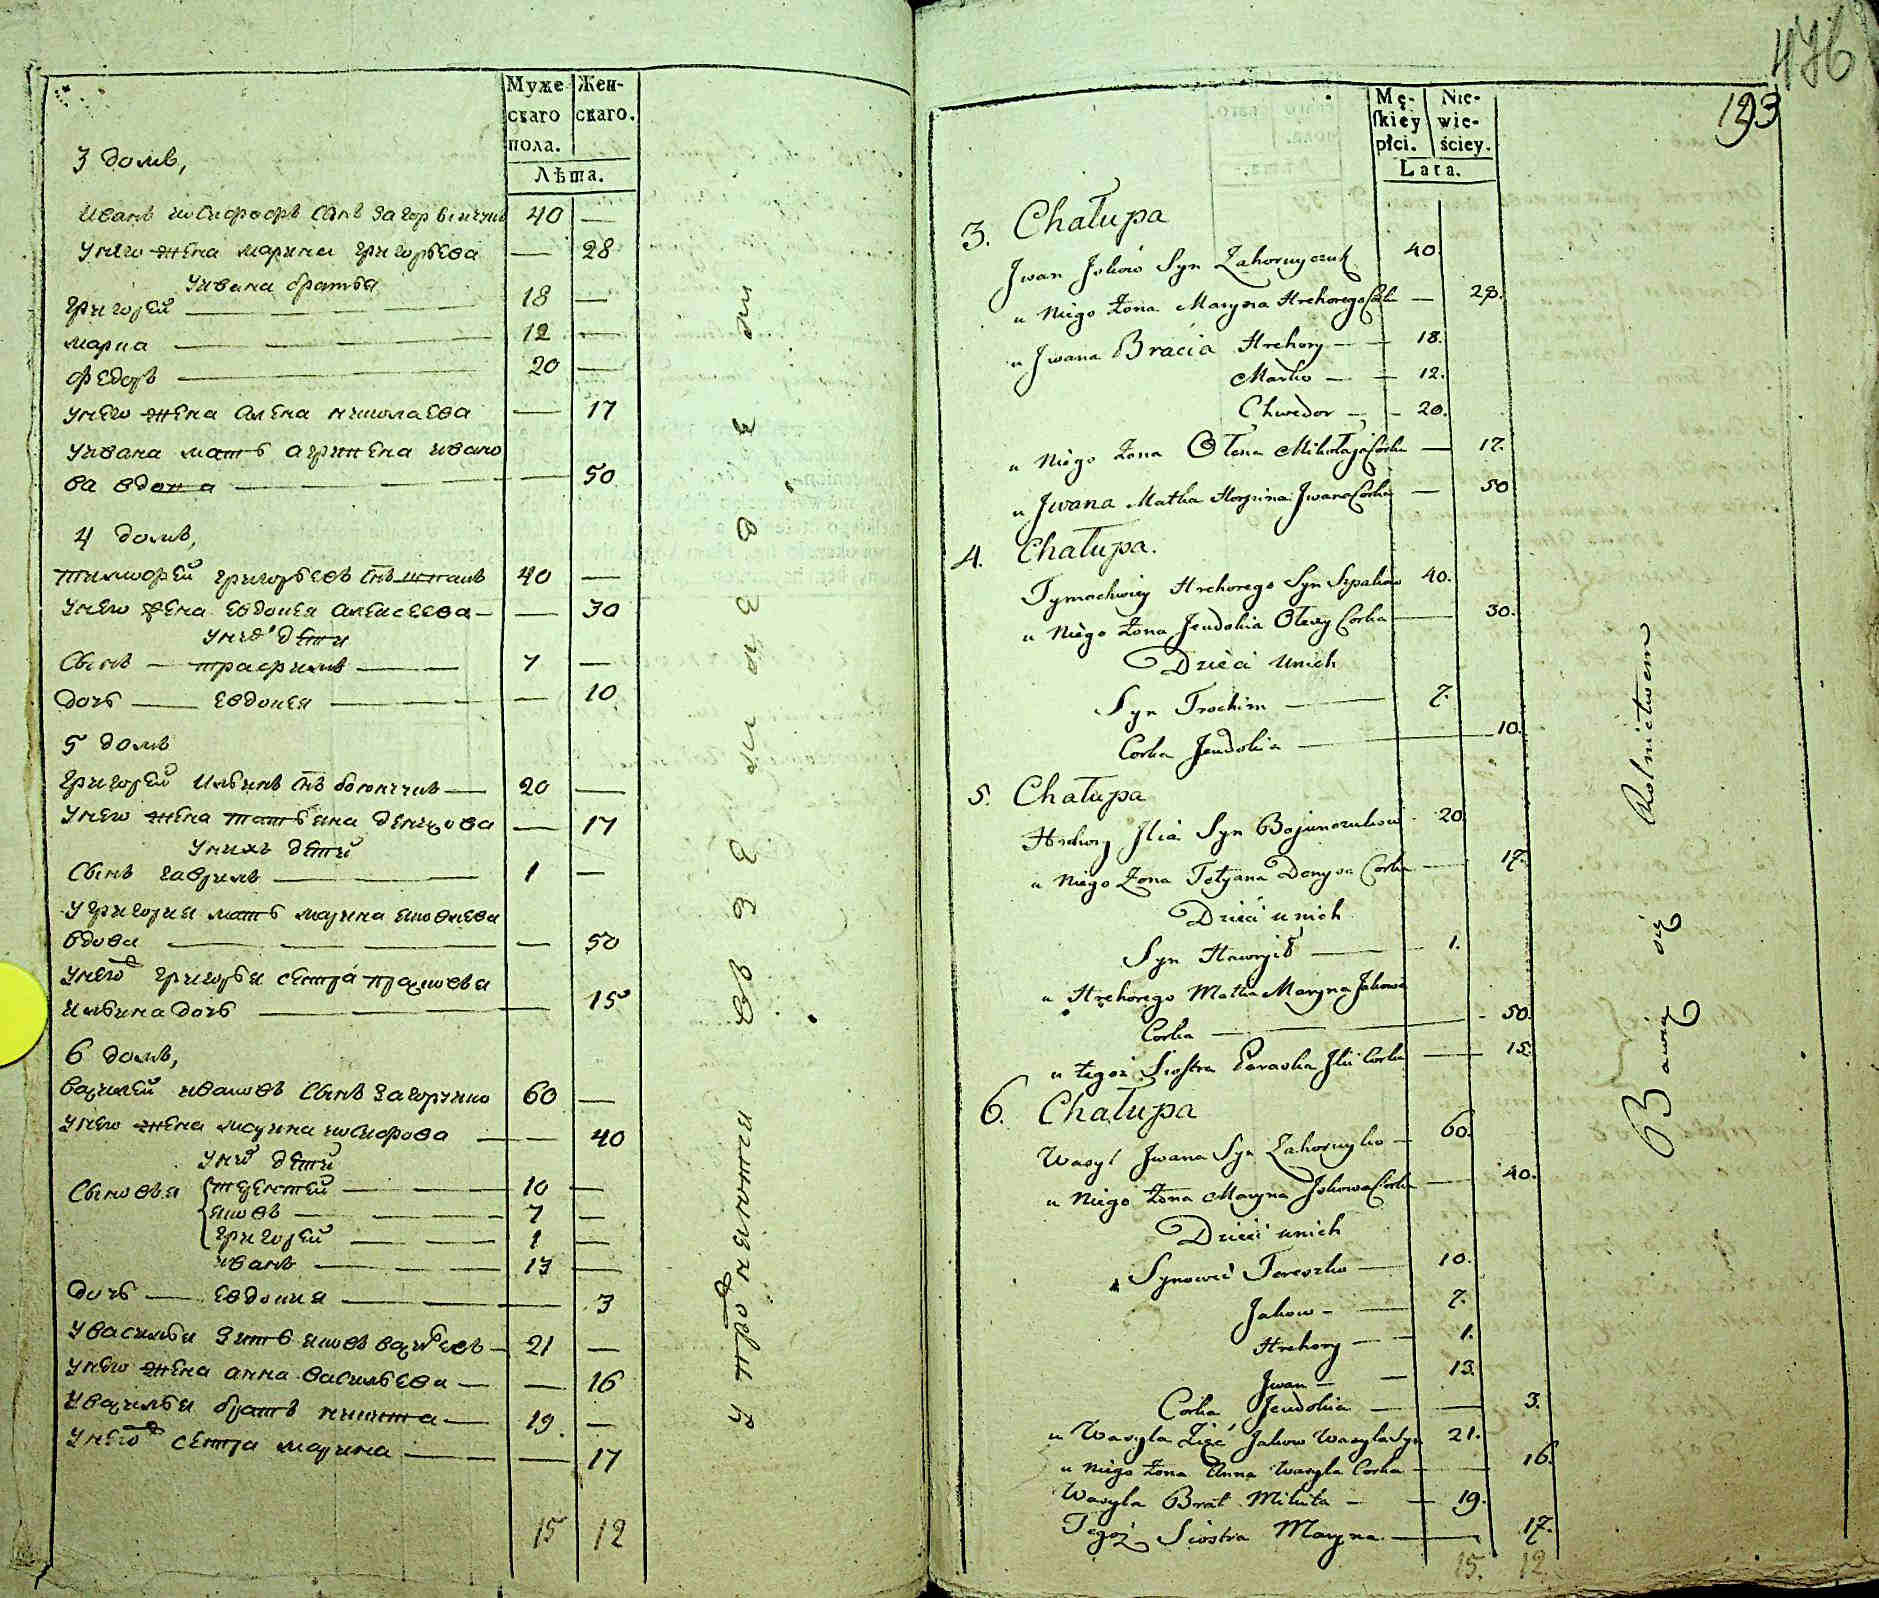 Муже
скаго
пола.
Жен-
скаго.
Лѣта.
3 домъ,
Иванъ иосифофъ сынъ Загорвничикъ 40 —
У него жена марина григорьева — 28
У ивана братья
григорей — 18 —
марка — 12 —
федоръ — 20 —
У него жена алена николаева — 17
У ивана мать агрипена ивано
ва вдова — 50
4 домъ,
тимофей григорьевъ снъ шпакъ 40 —
У него жена евдокея алексеева — 30
У них дети
Сынъ — трафимъ — 7 —
дочь — евдокея — 10
5 домъ
григорей ильинъ снъ боюнчикъ — 20 —
У него жена татьяна денисова — 17
У нихъ дети
Сынъ гаврилъ — 1 —
У григория мать марина яковлева
вдова — 50
У него григорья сестра
ильина дочь — 15
6 домъ,
василей ивановъ сынъ Загорнико 60 —
У него жена марина иосифова — 40
У них дети
Сыновья терентей — 10 —
яковъ — 7 —
григорей — 1 —
иванъ — 13 —
дочь — евдокия — 3
У василья зять яковъ васильевъ — 21 —
У него жена анна васильева — 16
У василья братъ никита — 19 —
У него сестра марина — 17
15 12
476
193
Mę-
skiey
płci.
Nie-
wie-
ściey.
Lata.
3. Chałupa
Jwan Jskow Syn Zahornyczuk 40.
u Niego Zona Maryna Hrehorego Corka — 28.
u Jwana Bracia Hrehory — 18.
Marko — 12.
Chwedor — 20.
u Niego Zona Ołena Mikołaja Corka — 17.
u Jwana Matka Horpina Jwana Corka — 50
4. Chałupa.
Tymochwiey Hrehorego Syn Szpakow 40.
u Niego Zona Jeudokia Olexy Corka — 30.
Dzieci unich
Syn Trochim — 7.
Corka Jeudokia — 10.
5. Chałupa
Hrehory Jlia Syn Bojunczukow 20.
u Niego Zona Tetjana Denysa Corka — 17.
Dzieci unich
Syn Hawryił — 1.
u Hrehorego Matka Maryna Jakowa
Corka — 50.
u tegoż Siostra Paraska Jlii Corka — 15.
6. Chałupa
Wasyl Jwana Syn Zahornyko — 60.
u Niego Zona Maryna Jskowa Corka — 40.
Dzieci unich
Synowie Tereszko — 10.
Jakow — 7.
Hrehory — 1.
Jwan — 13.
Corka Jeudokia — 3.
u Wasyla Zięć Jakow Wasyla Syn 21.
u Niego Zona Anna Wasyla Corka — 16.
Wasyla Brat Mikita — 19.
Tegoż Siostra Maryna — 17.
15. 12.
Bawią się Rolnictwem